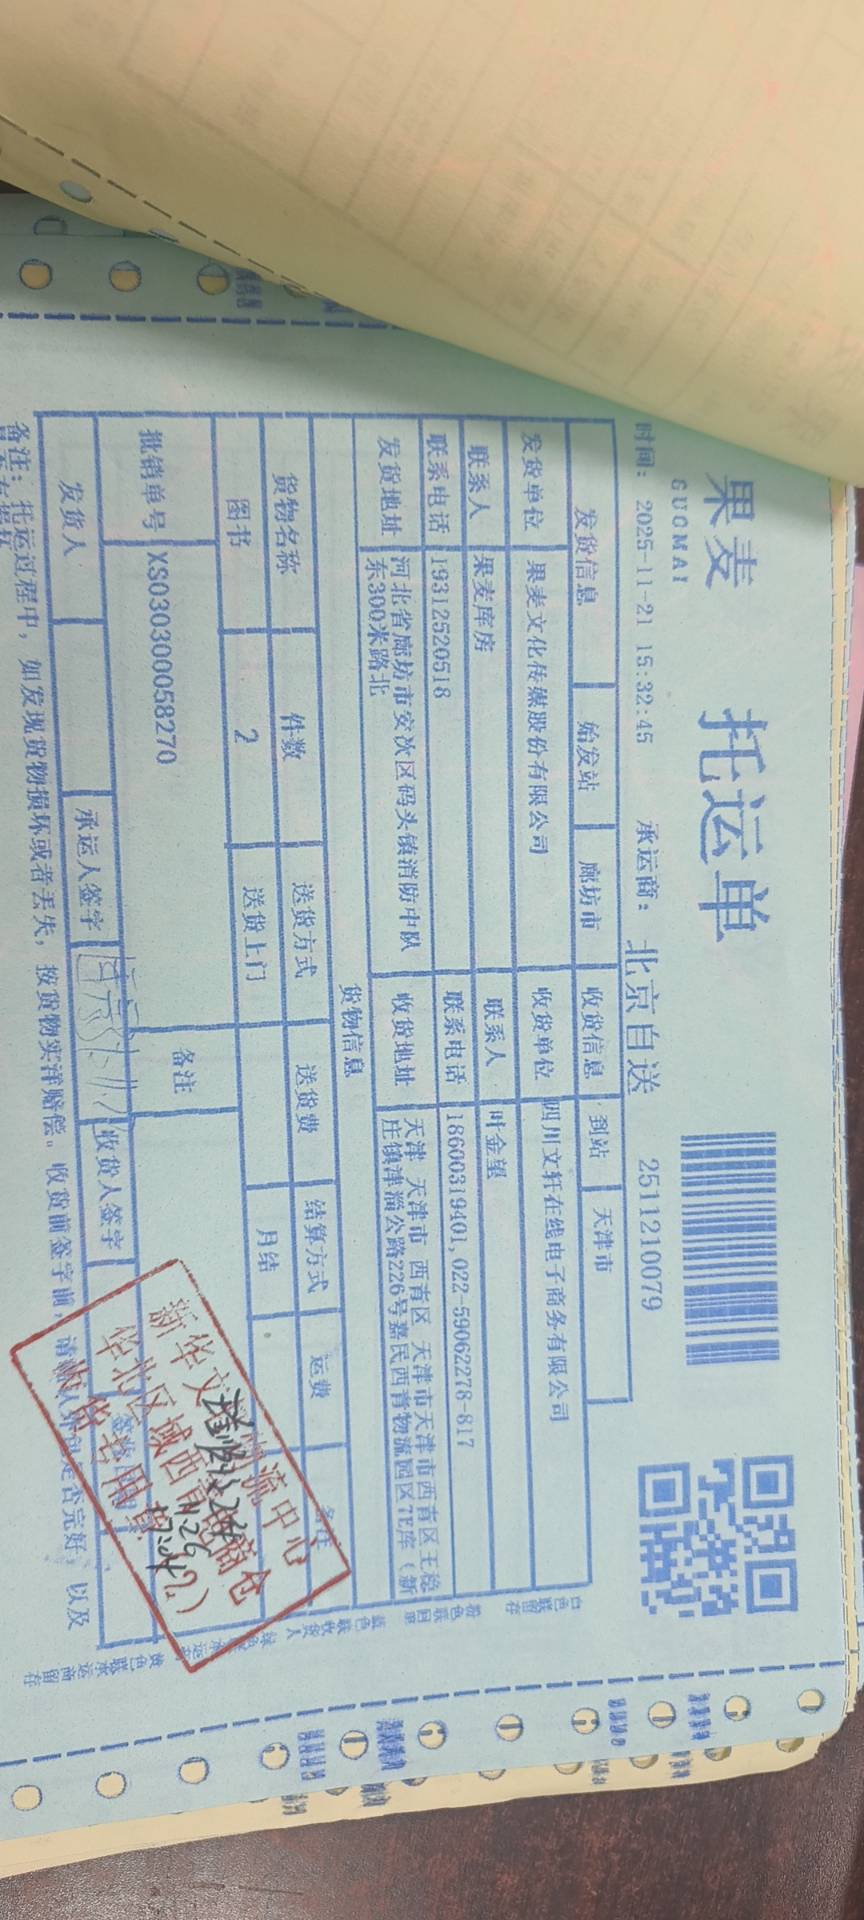 果麦
GUOMAI
托运单
时间：2025-11-21 15:32:45 承运商：北京自送 2511210079
发货信息 始发站 廊坊市 收货信息 到站 天津市
发货单位 果麦文化传媒股份有限公司 收货单位 四川文轩在线电子商务有限公司
联系人 果麦库房 联系人 叶金望
联系电话 19312520518 联系电话 18600319401,022-59062278-817
发货地址 河北省廊坊市安次区码头镇消防中队 收货地址 天津 天津市 西青区 天津市天津市西青区王稳
东300米路北 庄镇津淄公路226号嘉民西青物流园区7E库（新
货物信息
货物名称 件数 送货方式 送货费 结算方式 运费 备注
图书 2 送货上门 月结
批销单号 XS030300058270 备注
发货人 承运人签字 收货人签字
备注：托运过程中，如发现货物损坏或者丢失，按货物实洋赔偿。收货前签字前，请
是否完好，以及
新华文 物流中心
华北区域西 商仓
白色联留存
粉色联回单
蓝色联收货人
黄色联承运商留存